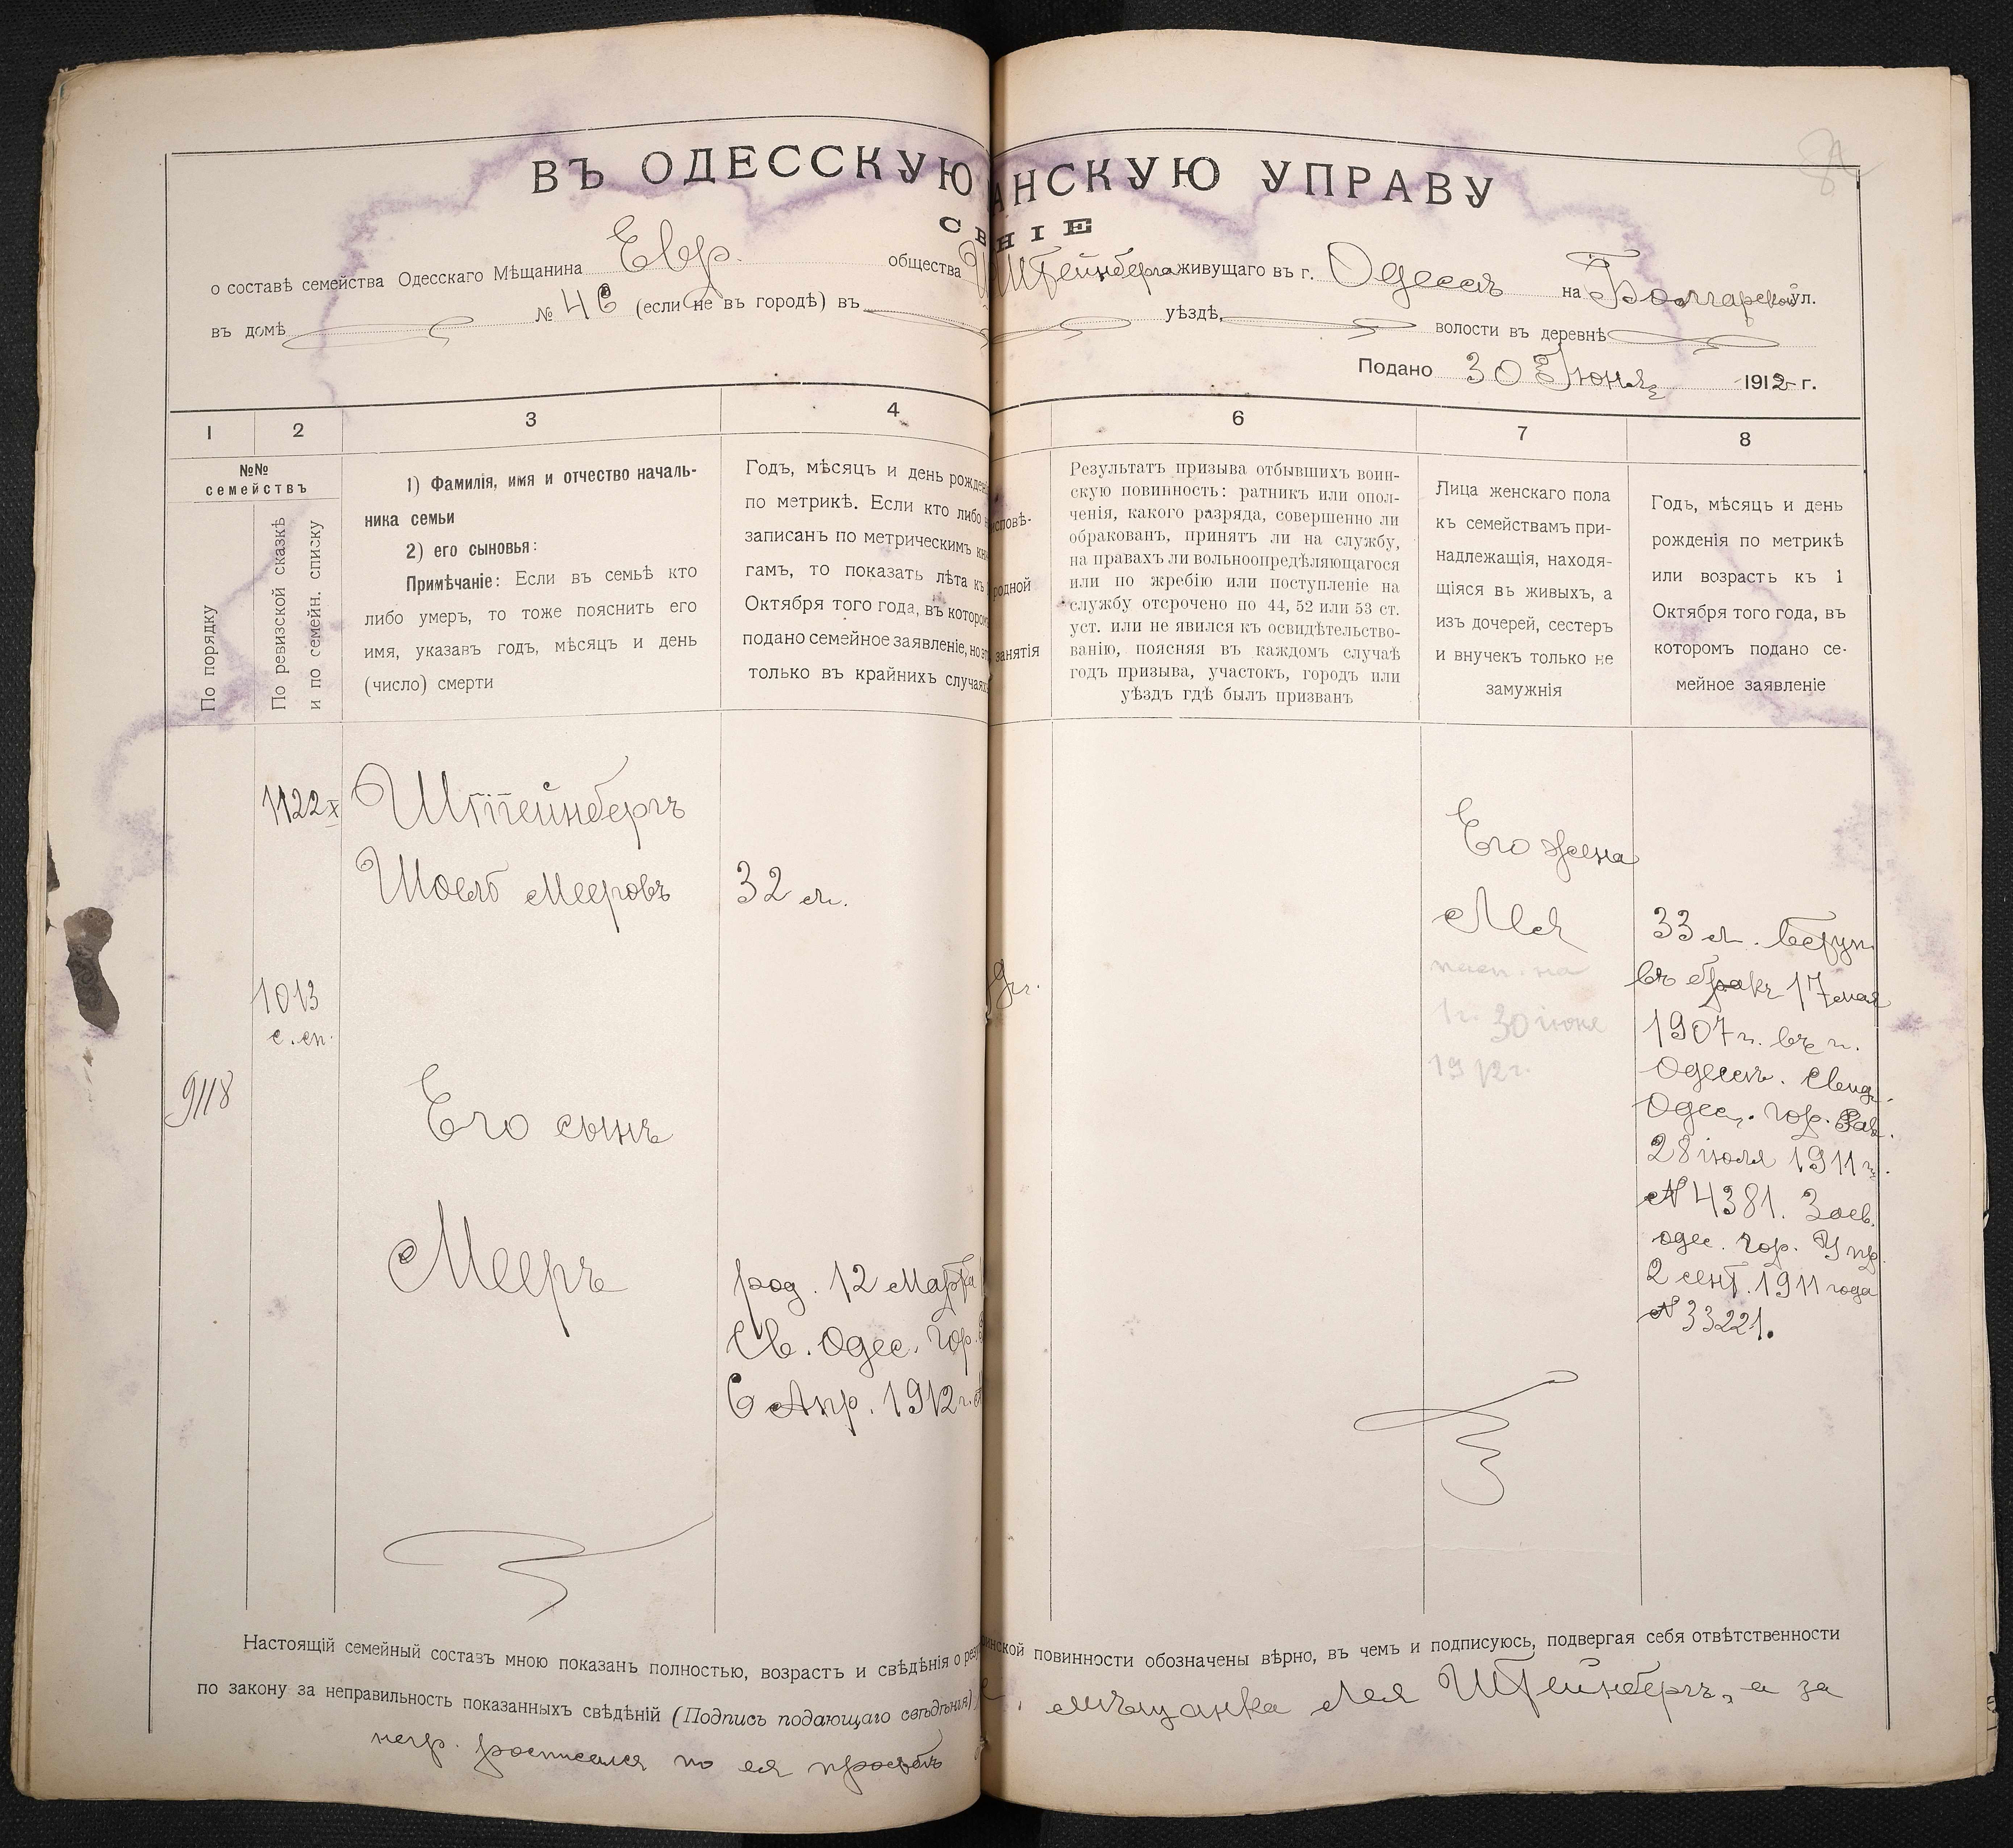 ВЪ ОДЕССКУЮ АНСКУЮ УПРАВУ
СВ НІЕ
о составѣ семейства Одесскаго Мѣщанина Евр. общества Штейнберга живущаго въ г. Одессѣ на Болгарской ул.
въ домѣ № 46 (если не въ городѣ) въ уѣздѣ, волости въ деревнѣ
Подано 30 Іюня 1912 г.
1 2 3 4 6 7 8
№№
семействъ
По порядку
По ревизской сказкѣ
и по семейн. списку
1) Фамилія, имя и отчество началь-
ника семьи
2) его сыновья:
Примѣчаніе: Если въ семьѣ кто
либо умеръ, то тоже пояснить его
имя, указавъ годъ, мѣсяцъ и день
(число) смерти
Годъ, мѣсяцъ и день рожден
по метрикѣ. Если кто либо
записанъ по метрическимъ кн
гамъ, то показать лѣта къ
Октября того года, въ котором
подано семейное заявленіе, но эт
только въ крайнихъ случаях
исповѣ-
родной
занятія
Результатъ призыва отбывшихъ воин-
скую повинность: ратникъ или опол-
ченія, какого разряда, совершенно ли
обракованъ, принятъ ли на службу,
на правахъ ли вольноопредѣляющагося
или по жребію или поступленіе на
службу отсрочено по 44, 52 или 53 ст.
уст. или не явился къ освидѣтельство-
ванію, поясняя въ каждомъ случаѣ
годъ призыва, участокъ, городъ или
уѣздъ гдѣ былъ призванъ
Лица женскаго пола
къ семействамъ при-
надлежащія, находя-
щіяся въ живыхъ, а
изъ дочерей, сестеръ
и внучекъ только не
замужнія
Годъ, мѣсяцъ и день
рожденія по метрикѣ
или возрастъ къ 1
Октября того года, въ
которомъ подано се-
мейное заявленіе
1122
Штейнбергъ
Шоелъ Мееровъ
32 л.
1013
с. сп.
9118
Его сынъ
Мееръ
род. 12 Марта
Св. Одес. гор.
6 Апр. 1912 г.
Его жена
Лея
пасп. на
1 г. 30 іюня
1912 г.
33 л. Вступ.
въ бракъ 17 мая
1907 г. въ г.
Одессѣ. Свид.
Одес. гор. Рав.
28 іюля 1911 г.
№ 4381. Засв.
одес. гор. Упр.
2 сент. 1911 года
№ 33221.
Настоящій семейный составъ мною показанъ полностью, возрастъ и свѣдѣнія о резу инской повинности обозначены вѣрно, въ чемъ и подписуюсь, подвергая себя отвѣтственности
по закону за неправильность показанныхъ свѣдѣній (Подпись подающаго свѣдѣнія) мѣщанка Лея Штейнбергъ, а за
негр. росписался по ея просьбѣ